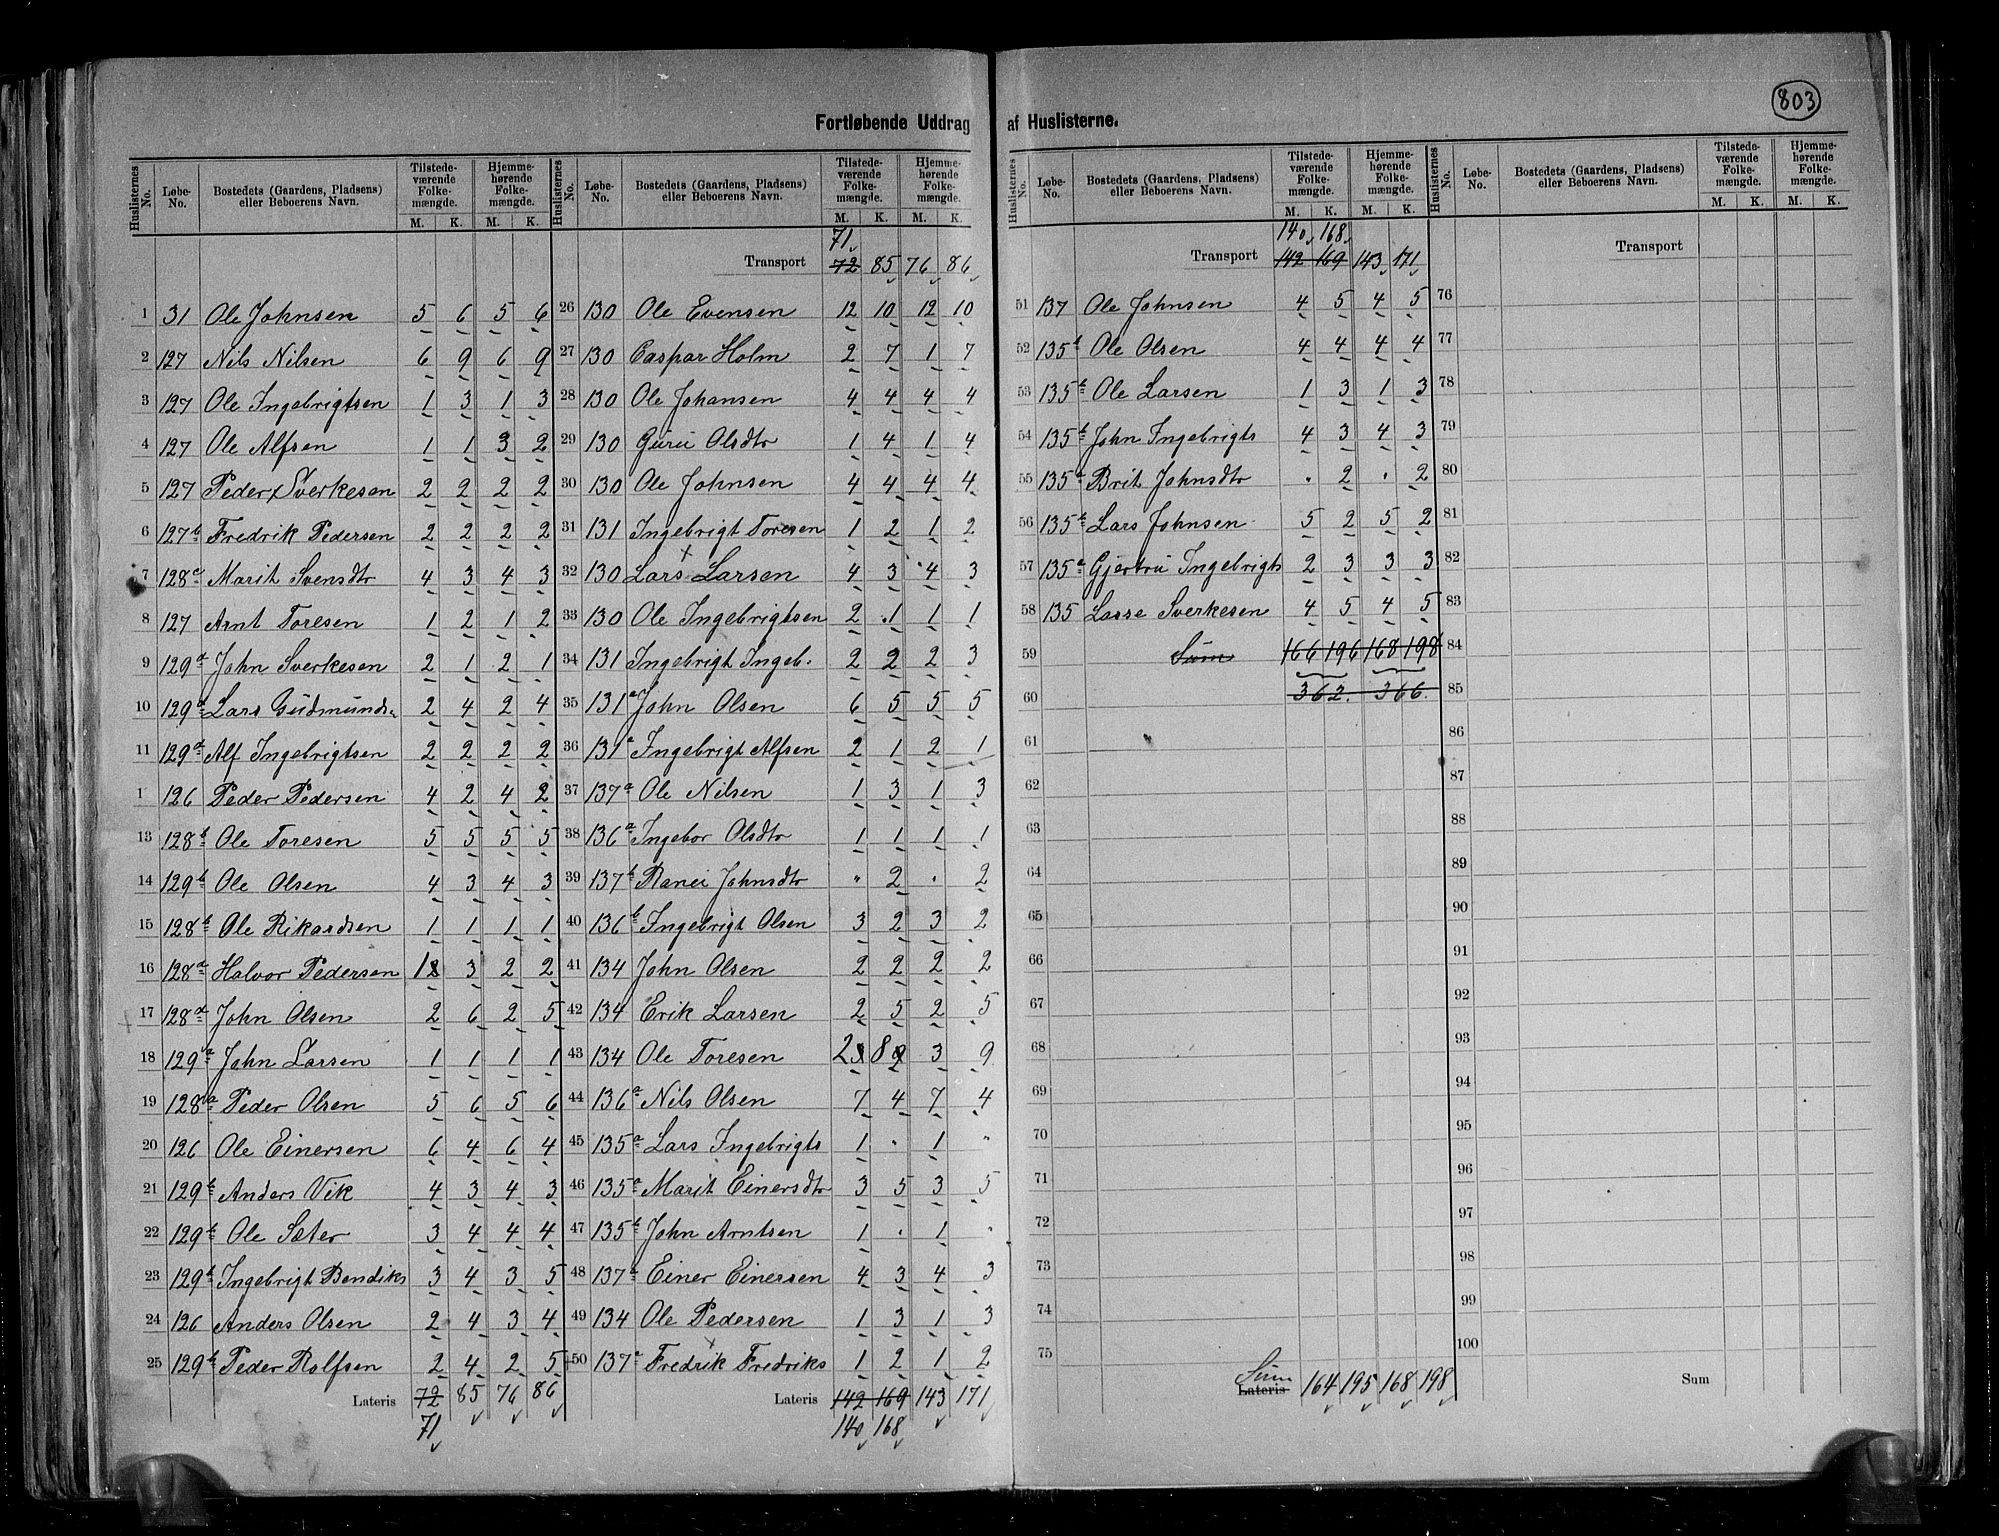 803
Fortløbende Uddrag af Huslisterne.
Huslisternes No. Løbe-No. Bostedets (Gaardens, Pladsens) eller Beboerens Navn. Tilstedeværende Folkemængde. M. K. Hjemmehørende Folkemængde. M. K.
1 31 Ole Johnsen 5 6 5 6
2 127 Nils Nilsen 6 9 6 9
3 127 Ole Ingebrigtsen 1 3 1 3
4 127 Ole Alfsen 1 1 3 2
5 127 Peder Sverkesen 2 2 2 2
6 127b Fredrik Pedersen 2 2 2 2
7 128a Marit Svensdtr 4 3 4 3
8 127 Arnt Toresen 1 2 1 2
9 129a John Sverkesen 2 1 2 1
10 129a Lars Gudmunds. 2 4 2 4
11 129a Alf Ingebrigtsen 2 2 2 2
1 126 Peder Pedersen 4 2 4 2
13 128b Ole Toresen 5 5 5 5
14 129b Ole Olsen 4 3 4 3
15 128b Ole Rikardsen 1 1 1 1
16 128a Halvor Pedersen 1 2 3 2 2
17 128a John Olsen 2 6 2 5
18 129a John Larsen 1 1 1 1
19 128a Peder Olsen 5 6 5 6
20 126 Ole Einersen 6 4 6 4
21 129b Anders Vik 4 3 4 3
22 129b Ole Sæter 3 4 4 4
23 129b Ingebrigt Bendiks 3 4 3 5
24 126 Anders Olsen 2 4 3 4
25 129b Peder Rolfsen 2 4 2 5
Lateris 72 85 76 86
71
Huslisternes No. Løbe-No. Bostedets (Gaardens, Pladsens) eller Beboerens Navn. Tilstedeværende Folkemængde. M. K. Hjemmehørende Folkemængde. M. K.
71
Transport 72 85 76 86
26 130 Ole Evensen 12 10 12 10
27 130 Caspar Holm 2 7 1 7
28 130 Ole Johansen 4 4 4 4
29 130 Guru Olsdtr 1 4 1 4
30 130 Ole Johnsen 4 4 4 4
31 131 Ingebrigt Toresen 1 2 1 2
32 130 Lars Larsen 4 3 4 3
33 130 Ole Ingebrigtsen 2 1 1 1
34 131 Ingebrigt Ingeb. 2 2 2 3
35 131a John Olsen 6 5 5 5
36 131a Ingebrigt Alfsen 2 1 2 1
37 137a Ole Nilsen 1 3 1 3
38 136a Ingebor Olsdtr 1 1 1 1
39 137b Ranei Johnsdtr " 2 " 2
40 136b Ingebrigt Olsen 3 2 3 2
41 134 John Olsen 2 2 2 2
42 134 Erik Larsen 2 5 2 5
43 134 Ole Toresen 2 3 8 9 3 9
44 136a Nils Olsen 7 4 7 4
45 135a Lars Ingebrigts 1 " 1 "
46 135a Marit Einersdtr 3 5 3 5
47 135b John Arntsen 1 " 1 "
48 137a Einer Einersen 4 3 4 3
49 134 Ole Pedersen 1 3 1 3
50 137a Fredrik Fredriks 1 2 1 2
Lateris 142 169 143 171
140 168
Huslisternes No. Løbe-No. Bostedets (Gaardens, Pladsens) eller Beboerens Navn. Tilstedeværende Folkemængde. M. K. Hjemmehørende Folkemængde. M. K.
140 168
Transport 142 169 143 171
51 137 Ole Johnsen 4 5 4 5
52 135b Ole Olsen 4 4 4 4
53 135b Ole Larsen 1 3 1 3
54 135b John Ingebrigts 4 3 4 3
55 135a Brit Johnsdtr " 2 " 2
56 135b Lars Johnsen 5 2 5 2
57 135a Gjertru Ingebrigts 2 3 3 3
58 135 Lasse Sverkesen 4 5 4 5
59 Sum 166 196 168 198
60 362. 366.
61
62
63
64
65
66
67
68
69
70
71
72
73
74
75
Sum
Lateris 164 195 168 198
Huslisternes No. Løbe-No. Bostedets (Gaardens, Pladsens) eller Beboerens Navn. Tilstedeværende Folkemængde. M. K. Hjemmehørende Folkemængde. M. K.
Transport
76
77
78
79
80
81
82
83
84
85
86
87
88
89
90
91
92
93
94
95
96
97
98
99
100
Sum